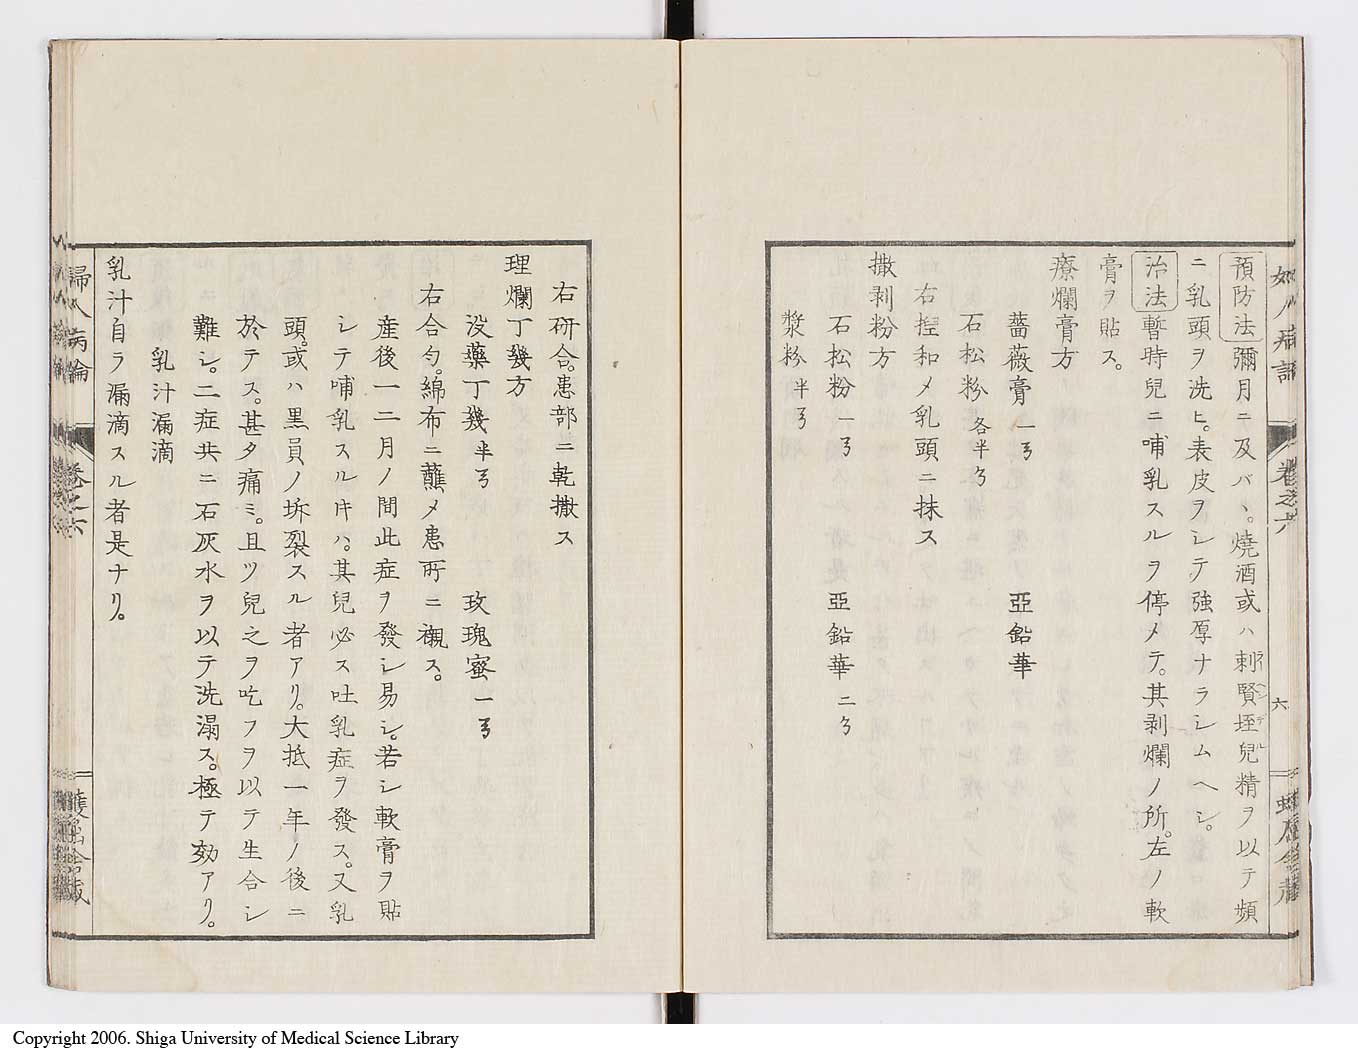 預防法彌月ニ及バヽ。燒酒或ハ剌賢垤兒精ヲ以テ頻
ニ乳頭ヲ洗ヒ。表皮ヲシテ強厚ナラシムヘシ。
治法暫時兒ニ哺乳スルヲ停メテ。其剥爛ノ所。左ノ軟
膏ヲ貼ス。
療爛膏方
薔薇膏 一ヲ 亞鉛華
石松粉 各半ヲ
右揑和メ乳頭ニ抹ス
撒剥粉方
石松粉 一ヲ 亞鉛華 二ヲ
漿粉 半ヲ
六
卷之六
右研合。患部ニ乾撒ス
理爛丁幾方
没藥丁幾 半ヲ 玫瑰蜜 一ヲ
右合勻。綿布ニ蘸メ患所ニ襯ス。
産後一二月ノ間此症ヲ發シ易シ。若シ軟膏ヲ貼
シテ哺乳スル𪜈ハ。其兒必ス吐乳症ヲ發ス。又乳
頭。或ハ黒員ノ坼裂スル者アリ。大抵一年ノ後ニ
於テス。甚タ痛ミ。且ツ兒之ヲ吃フヲ以テ生合シ
難シ。二症共ニ石灰水ヲ以テ洗溻ス。極テ効アリ。
乳汁漏滴
乳汁自ラ漏滴スル者是ナリ。
婦人病論 卷之六
Copyright 2006. Shiga University of Medical Science Library